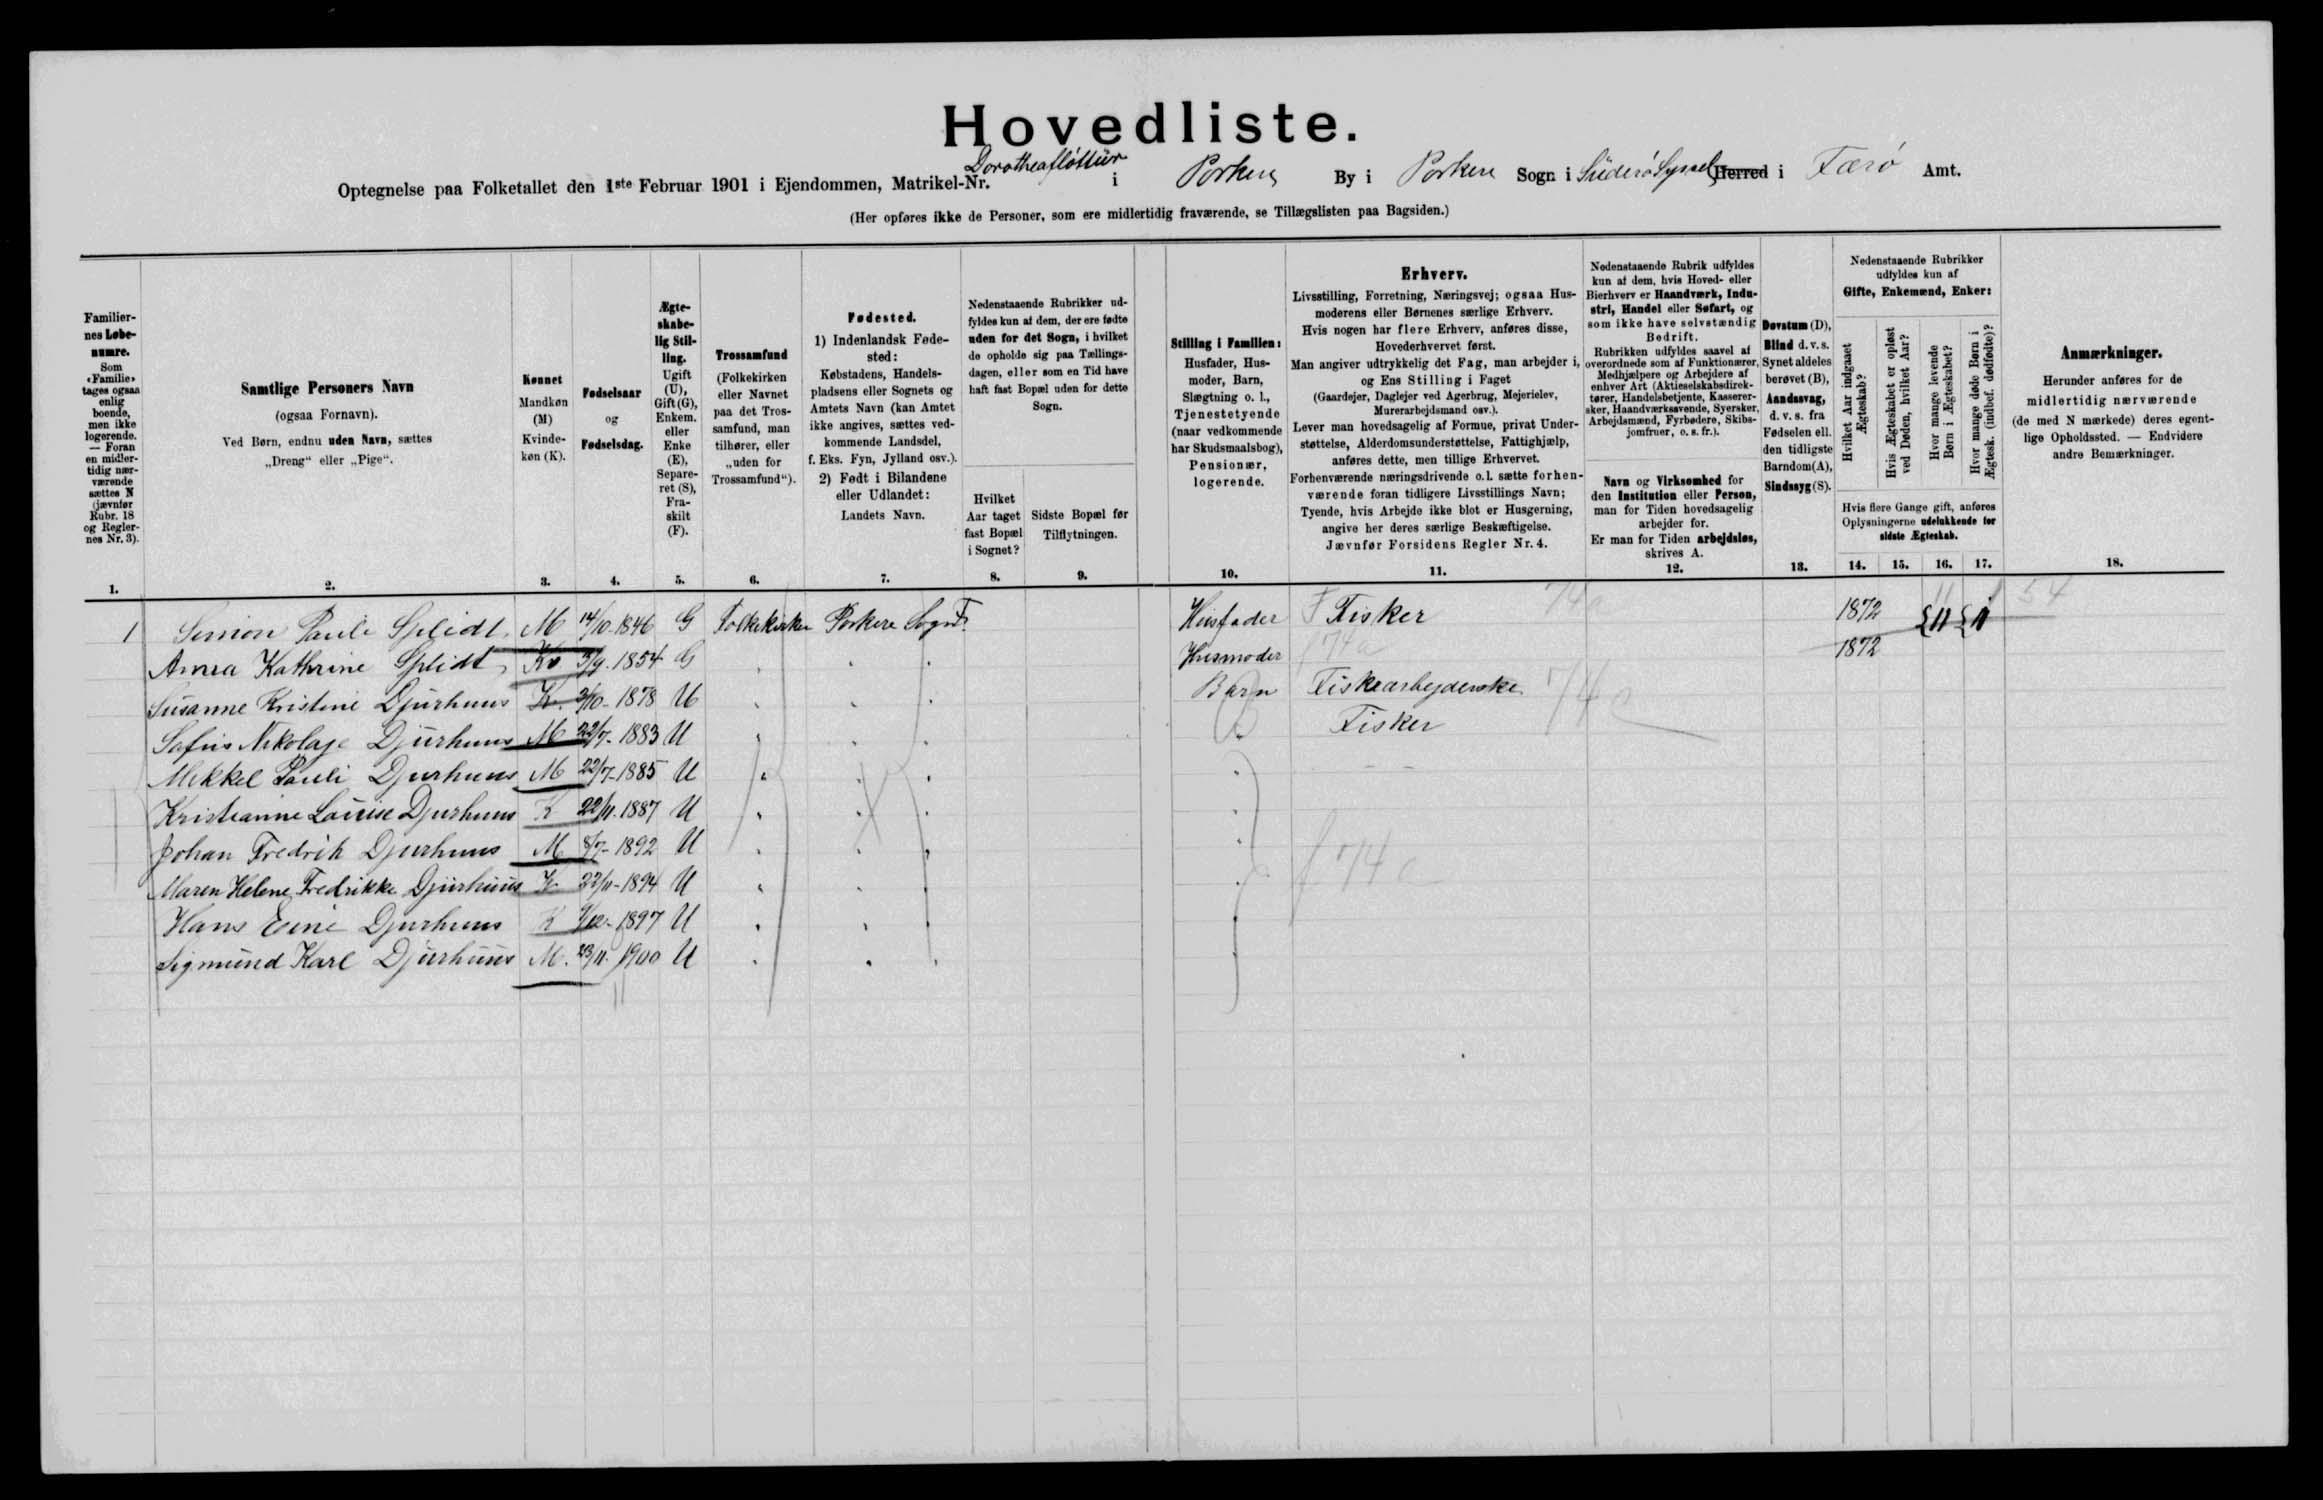 Hovedliste.
Dorotheaflóttür
Optegnelse paa Folketallet den 1ste Februar 1901 i Ejendommen, Matrikel-Nr. i Porkere By i Porkere Sogn i Süderó Syssel Herred i Færó Amt.
(Her opføres ikke de Personer, som ere midlertidig fraværende, se Tillægslisten paa Bagsiden.)
Familiernes Løbenumre.
Som «Familie» tages ogsaa enlig boende, men ikke logerende. — Foran en midlertidig nærværende sættes N (jævnfør Rubr. 18 og Reglernes Nr. 3).
Samtlige Personers Navn
(ogsaa Fornavn).
Ved Børn, endnu uden Navn, sættes
„Dreng“ eller „Pige“.
Kønnet
Mandkøn
(M)
Kvinde-
køn (K).
Fødselsaar
og
Fødselsdag.
Ægte-
skabe-
lig Stil-
ling.
Ugift
(U),
Gift (G),
Enkem.
eller
Enke
(E),
Separe-
ret (S),
Fra-
skilt
(F).
Trossamfund
(Folkekirken
eller Navnet
paa det Tros-
samfund, man
tilhører, eller
„uden for
Trossamfund“).
Fødested.
1) Indenlandsk Føde-
sted:
Købstadens, Handels-
pladsens eller Sognets og
Amtets Navn (kan Amtet
ikke angives, sættes ved-
kommende Landsdel,
f. Eks. Fyn, Jylland osv.).
2) Født i Bilandene
eller Udlandet:
Landets Navn.
Nedenstaaende Rubrikker ud-
fyldes kun af dem, der ere fødte
uden for det Sogn, i hvilket
de opholde sig paa Tællings-
dagen, eller som en Tid have
haft fast Bopæl uden for dette
Sogn.
Hvilket
Aar taget
fast Bopæl
i Sognet?
Sidste Bopæl før
Tilflytningen.
Stilling i Familien:
Husfader, Hus-
moder, Barn,
Slægtning o. l.,
Tjenestetyende
(naar vedkommende
har Skudsmaalsbog),
Pensionær,
logerende.
Erhverv.
Livsstilling, Forretning, Næringsvej; ogsaa Hus-
moderens eller Børnenes særlige Erhverv.
Hvis nogen har flere Erhverv, anføres disse,
Hovederhvervet først.
Man angiver udtrykkelig det Fag, man arbejder i,
og Ens Stilling i Faget
(Gaardejer, Daglejer ved Agerbrug, Mejerielev,
Murerarbejdsmand osv.).
Lever man hovedsagelig af Formue, privat Under-
støttelse, Alderdomsunderstøttelse, Fattighjælp,
anføres dette, men tillige Erhvervet.
Forhenværende næringsdrivende o.l. sætte forhen-
værende foran tidligere Livsstillings Navn;
Tyende, hvis Arbejde ikke blot er Husgerning,
angive her deres særlige Beskæftigelse.
Jævnfør Forsidens Regler Nr. 4.
Nedenstaaende Rubrik udfyldes
kun af dem, hvis Hoved- eller
Bierhverv er Haandværk, Indu-
stri, Handel eller Søfart, og
som ikke have selvstændig
Bedrift.
Rubrikken udfyldes saavel af
overordnede som af Funktionærer,
Medhjælpere og Arbejdere af
enhver Art (Aktieselskabsdirek-
tører, Handelsbetjente, Kasserer-
sker, Haandværkssvende, Syersker,
Arbejdsmænd, Fyrbødere, Skibs-
jomfruer, o. s. fr.).
Navn og Virksomhed for
den Institution eller Person,
man for Tiden hovedsagelig
arbejder for.
Er man for Tiden arbejdsløs,
skrives A.
Døvstum (D),
Blind d. v. s.
Synet aldeles
berøvet (B),
Aandssvag,
d. v. s. fra
Fødselen ell.
den tidligste
Barndom (A),
Sindssyg (S).
Nedenstaaende Rubrikker
udfyldes kun af
Gifte, Enkemænd, Enker:
Hvilket Aar indgaaet
Ægteskab?
Hvis Ægteskabet er opløst
ved Døden, hvilket Aar?
Hvor mange levende
Børn i Ægteskabet?
Hvor mange døde Børn i
Ægtesk. (indbef. dødfødte)?
Hvis flere Gange gift, anføres
Oplysningerne udelukkende for
sidste Ægteskab.
Anmærkninger.
Herunder anføres for de
midlertidig nærværende
(de med N mærkede) deres egent-
lige Opholdssted. — Endvidere
andre Bemærkninger.
1. 2. 3. 4. 5. 6. 7. 8. 9. 10. 11. 12. 13. 14. 15. 16. 17. 18.
1 Simon Pauli Splidt M 14/10-1846 G Folkekirken Porkere Sogn F. Husfader Fisker 1872 11
Anna Kathrine Splidt Kv 3/9. 1854 G Husmoder 1872
Susanne Kristine Djurhuus K. 3/10-1878 U Barn Fiskearbejderske
Sofus Nikolaje Djurhuus M 22/7-1883 U Fisker
Mikkel Pauli Djurhuus M 22/7-1885 U
Kristianne Louise Djurhuus K 22/11. 1887 U
Johan Fredrik Djurhuus M 8/7-1892 U
Maren Helene Fredrikke Djurhuus K 22/11-1894 U
Hans Djurhuus K 9/12-1897 U
Sigmund Karl Djurhuus M. 23/11. 1900 U